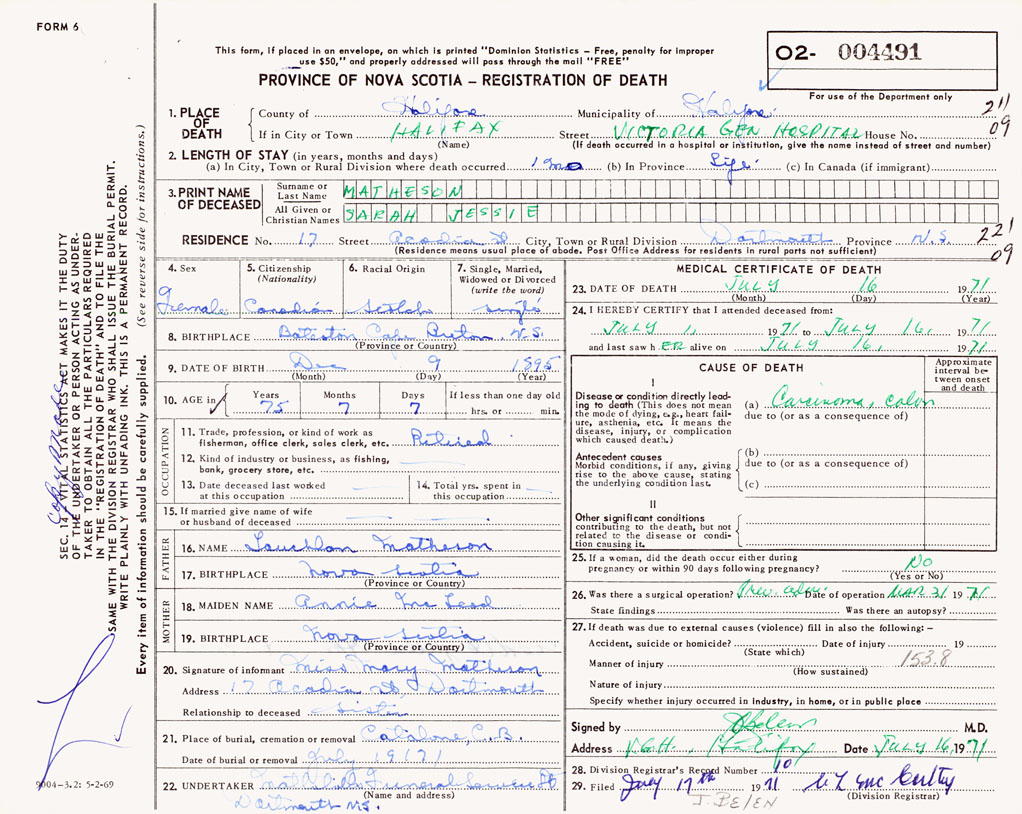 FORM 6
This form, if placed in an envelope, on which is printed "Dominion Statistics – Free, penalty for improper
use $50," and properly addressed will pass through the mail "FREE"
PROVINCE OF NOVA SCOTIA – REGISTRATION OF DEATH
02- 004491
For use of the Department only
1. PLACE OF DEATH
County of Halifax Municipality of Halifax 211
If in City or Town HALIFAX Street VICTORIA GEN HOSPITAL House No. 09
(Name) (If death occurred in a hospital or institution, give the name instead of street and number)
2. LENGTH OF STAY (in years, months and days)
(a) In City, Town or Rural Division where death occurred 1 mo (b) In Province Life (c) In Canada (if immigrant)
3. PRINT NAME OF DECEASED
Surname or Last Name MATHESON
All Given or Christian Names SARAH JESSIE
RESIDENCE No. 17 Street Acadia St City, Town or Rural Division Dartmouth Province N.S. 221
(Residence means usual place of abode. Post Office Address for residents in rural parts not sufficient) 09
4. Sex
Female
5. Citizenship
(Nationality)
Canadian
6. Racial Origin
Scotch
7. Single, Married,
Widowed or Divorced
(write the word)
single
8. BIRTHPLACE Cape Breton, N.S.
(Province or Country)
9. DATE OF BIRTH Dec 9 1895
(Month) (Day) (Year)
10. AGE in
Years Months Days If less than one day old
75 7 7 hrs. or min.
OCCUPATION
11. Trade, profession, or kind of work as
fisherman, office clerk, sales clerk, etc. Retired
12. Kind of industry or business, as fishing,
bank, grocery store, etc.
13. Date deceased last worked
at this occupation
14. Total yrs. spent in
this occupation
15. If married give name of wife
or husband of deceased
FATHER
16. NAME Lauchlan Matheson
17. BIRTHPLACE Nova Scotia
(Province or Country)
MOTHER
18. MAIDEN NAME Annie McLeod
19. BIRTHPLACE Nova Scotia
(Province or Country)
20. Signature of informant Miss Mary Matheson
Address 17 Acadia St, Dartmouth
Relationship to deceased Sister
21. Place of burial, cremation or removal C.B.
Date of burial or removal July 19 1971
22. UNDERTAKER Funeral Service
(Name and address)
Dartmouth N.S.
MEDICAL CERTIFICATE OF DEATH
23. DATE OF DEATH JULY 16 1971
(Month) (Day) (Year)
24. I HEREBY CERTIFY that I attended deceased from:
JULY 1, 1971 to JULY 16, 1971
and last saw h ER alive on JULY 16, 1971
CAUSE OF DEATH
Approximate
interval be-
tween onset
and death
I
Disease or condition directly lead-
ing to death (This does not mean
the mode of dying, e.g., heart fail-
ure, asthenia, etc. It means the
disease, injury, or complication
which caused death.)
(a) Carcinoma, colon
due to (or as a consequence of)
Antecedent causes
Morbid conditions, if any, giving
rise to the above cause, stating
the underlying condition last.
(b)
due to (or as a consequence of)
(c)
II
Other significant conditions
contributing to the death, but not
related to the disease or condi-
tion causing it.
25. If a woman, did the death occur either during
pregnancy or within 90 days following pregnancy? NO
(Yes or No)
26. Was there a surgical operation? Date of operation MAR 31 1971
State findings Was there an autopsy?
27. If death was due to external causes (violence) fill in also the following: –
Accident, suicide or homicide? Date of injury 19
(State which) 153.8
Manner of injury
(How sustained)
Nature of injury
Specify whether injury occurred in industry, in home, or in public place
Signed by M.D.
Address V.G.H. Halifax Date JULY 16, 1971
28. Division Registrar's Record Number 10
29. Filed July 17th 1971
(Division Registrar)
SEC. 14 – VITAL STATISTICS ACT MAKES IT THE DUTY
OF THE UNDERTAKER OR PERSON ACTING AS UNDER-
TAKER TO OBTAIN ALL THE PARTICULARS REQUIRED
IN THE "REGISTRATION OF DEATH", AND TO FILE THE
SAME WITH THE DIVISION REGISTRAR WHO SHALL ISSUE THE BURIAL PERMIT.
WRITE PLAINLY WITH UNFADING INK. THIS IS A PERMANENT RECORD.
Every item of information should be carefully supplied. (See reverse side for instructions.)
9004–3.2: 5-2-69